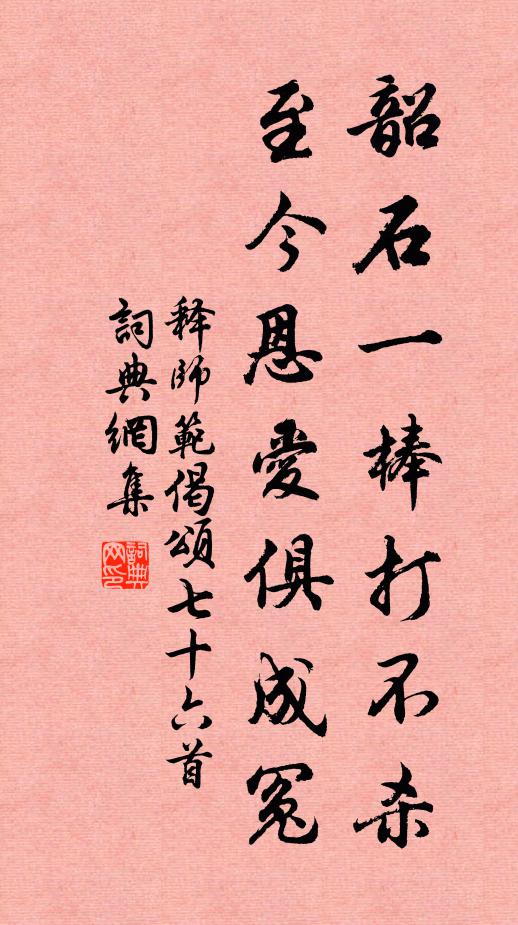 韶石一棒打不杀
至今恩愛俱成冤
释師範偈頌七十六首
詞典網集
詞典网印